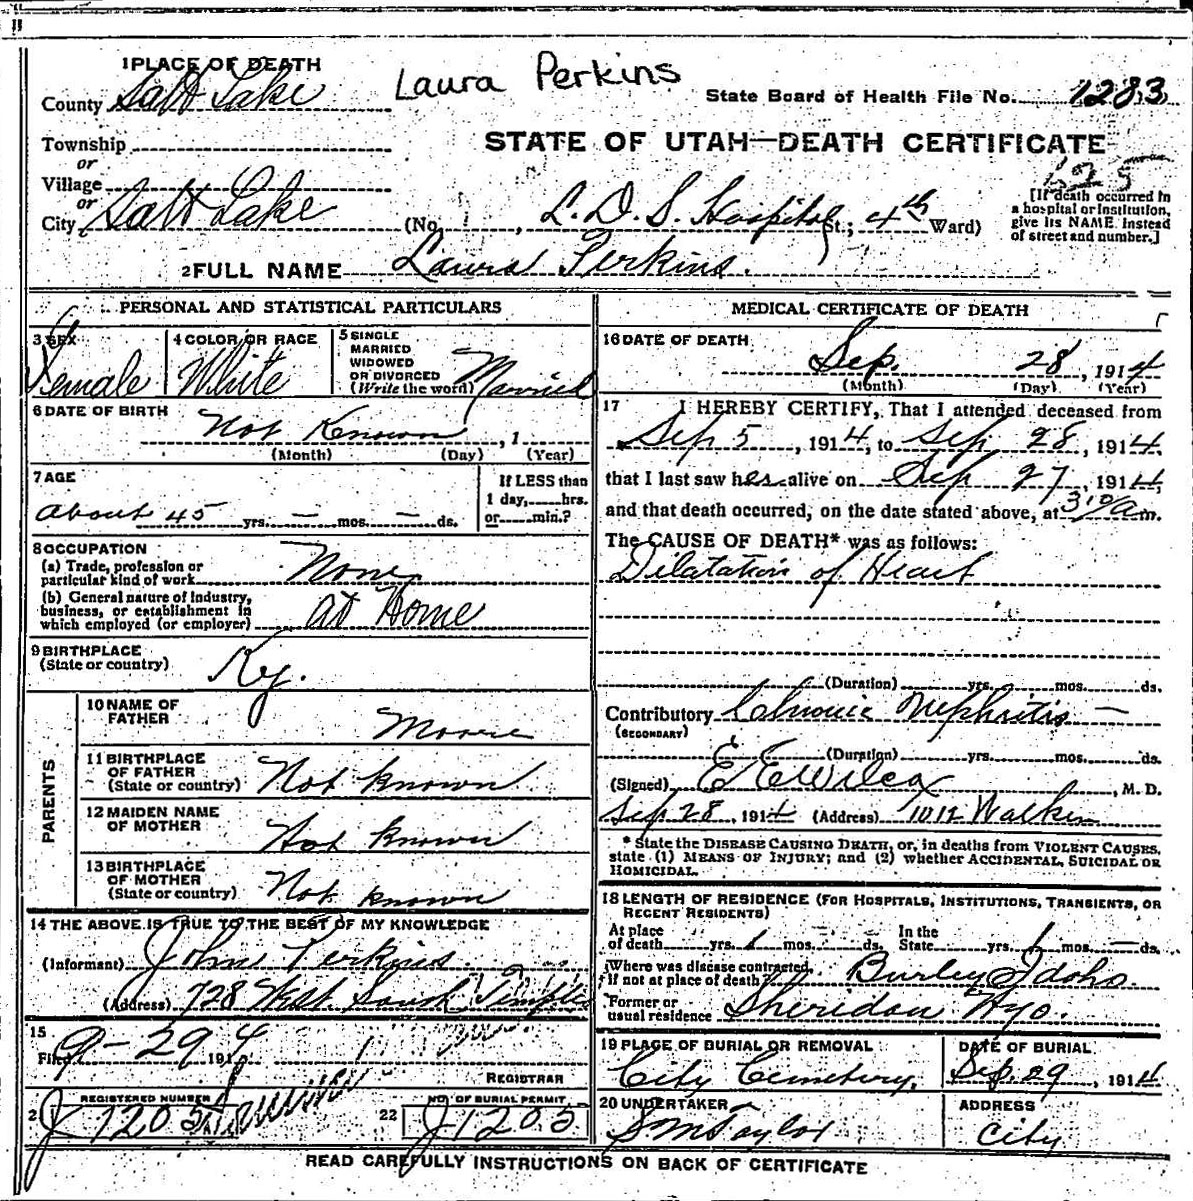 1 PLACE OF DEATH
Laura Perkins
County Salt Lake
State Board of Health File No. 1283
Township
STATE OF UTAH—DEATH CERTIFICATE
or
Village
625
or
City Salt Lake (No. , L. D. S. Hospital St.; 4th Ward)
[If death occurred in a hospital or institution, give its NAME instead of street and number.]
2 FULL NAME Laura Perkins.
PERSONAL AND STATISTICAL PARTICULARS
3 SEX
Female
4 COLOR OR RACE
White
5 SINGLE
MARRIED
WIDOWED
OR DIVORCED
(Write the word) Married
6 DATE OF BIRTH
Not Known , 1
(Month) (Day) (Year)
7 AGE
about 45 yrs. — mos. — ds.
If LESS than
1 day, hrs.
or min.?
8 OCCUPATION
(a) Trade, profession or
particular kind of work None
(b) General nature of industry,
business, or establishment in
which employed (or employer) at Home
9 BIRTHPLACE
(State or country) Ky.
PARENTS
10 NAME OF
FATHER Moore
11 BIRTHPLACE
OF FATHER
(State or country) Not known
12 MAIDEN NAME
OF MOTHER Not known
13 BIRTHPLACE
OF MOTHER
(State or country) Not known
14 THE ABOVE IS TRUE TO THE BEST OF MY KNOWLEDGE
(Informant) John Perkins.
(Address) 728 West South Temple
15
Filed 9-29 1914
REGISTRAR
REGISTERED NUMBER
J 1205
22
NO. OF BURIAL PERMIT
J 1205
MEDICAL CERTIFICATE OF DEATH
16 DATE OF DEATH
Sep. 28, 1914
(Month) (Day) (Year)
17 I HEREBY CERTIFY, That I attended deceased from
Sep 5, 1914, to Sep 28, 1914,
that I last saw her alive on Sep 27, 1914,
and that death occurred, on the date stated above, at 3 10/a m.
The CAUSE OF DEATH* was as follows:
Dilatation of Heart
(Duration) yrs. mos. ds.
Contributory Chronic Nephritis —
(SECONDARY)
(Duration) yrs. mos. ds.
(Signed) E E Wilcox, M. D.
Sep 28, 1914 (Address) 1012 Walker
* State the DISEASE CAUSING DEATH, or, in deaths from VIOLENT CAUSES,
state (1) MEANS OF INJURY; and (2) whether ACCIDENTAL, SUICIDAL OR
HOMICIDAL.
18 LENGTH OF RESIDENCE (FOR HOSPITALS, INSTITUTIONS, TRANSIENTS, OR
RECENT RESIDENTS)
At place In the
of death yrs. 1 mos. ds. State yrs. 1 mos. — ds.
Where was disease contracted,
if not at place of death? Burley Idaho.
Former or
usual residence Sheridan Wyo.
19 PLACE OF BURIAL OR REMOVAL
City Cemetery.
DATE OF BURIAL
Sep. 29, 1914
20 UNDERTAKER
S M Taylor
ADDRESS
City
READ CAREFULLY INSTRUCTIONS ON BACK OF CERTIFICATE